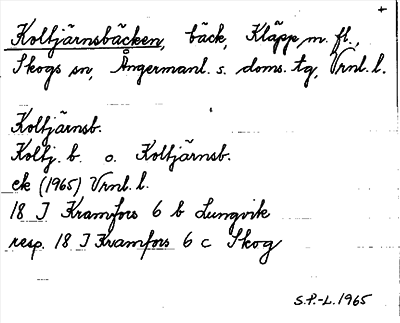 +
Koltjärnsbäcken, bäck, Kläpp m. fl.,
Skogs sn, Ångermanl. s. doms. tg, Vrnl. l.
Koltjärnsb.
Koltj. b. o. Koltjärnsb.
ek (1965) Vrnl. l.
18 I Kramfors 6 b Lungvik
resp. 18 I Kramfors 6 c Skog
S.P.-L. 1965